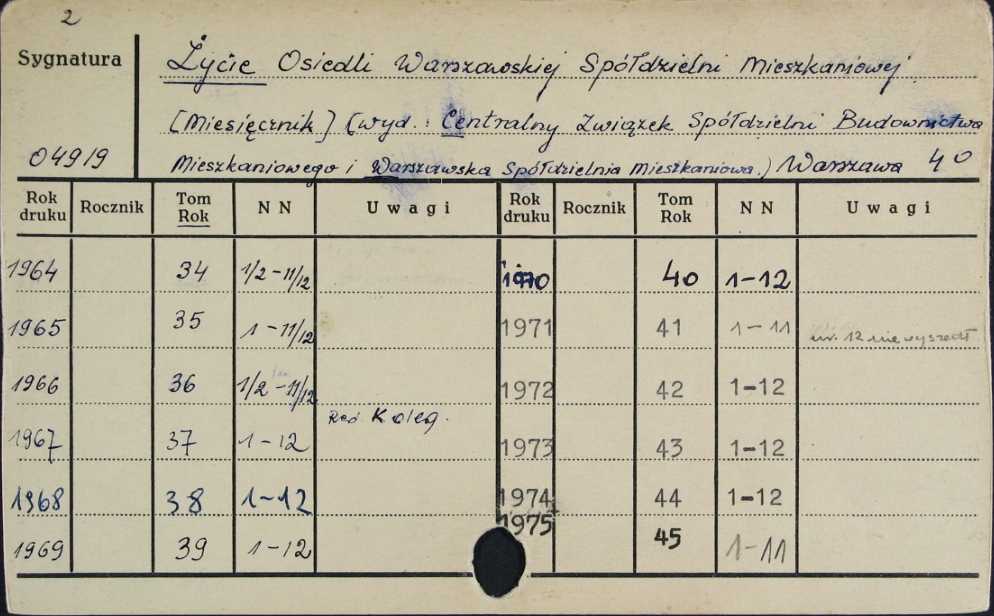 2
Sygnatura
Życie Osiedli Warszawskiej Spółdzielni Mieszkaniowej
[Miesięcznik] (wyd.: Centralny Związek Spółdzielni Budownictwa
04919
Mieszkaniowego i Warszawska Spółdzielnia Mieszkaniowa.) Warszawa 40
Rok druku Rocznik Tom Rok NN Uwagi Rok druku Rocznik Tom Rok NN Uwagi
1964 34 1/2-11/12 1970 40 1-12
1965 35 1-11/12 1971 41 1-11 nr. 12 nie wyszedł
1966 36 1/2-11/12 1972 42 1-12
Red. Koleg.
1967 37 1-12 1973 43 1-12
1968 38 1-12 1974 44 1-12
1969 39 1-12 1975 45 1-11